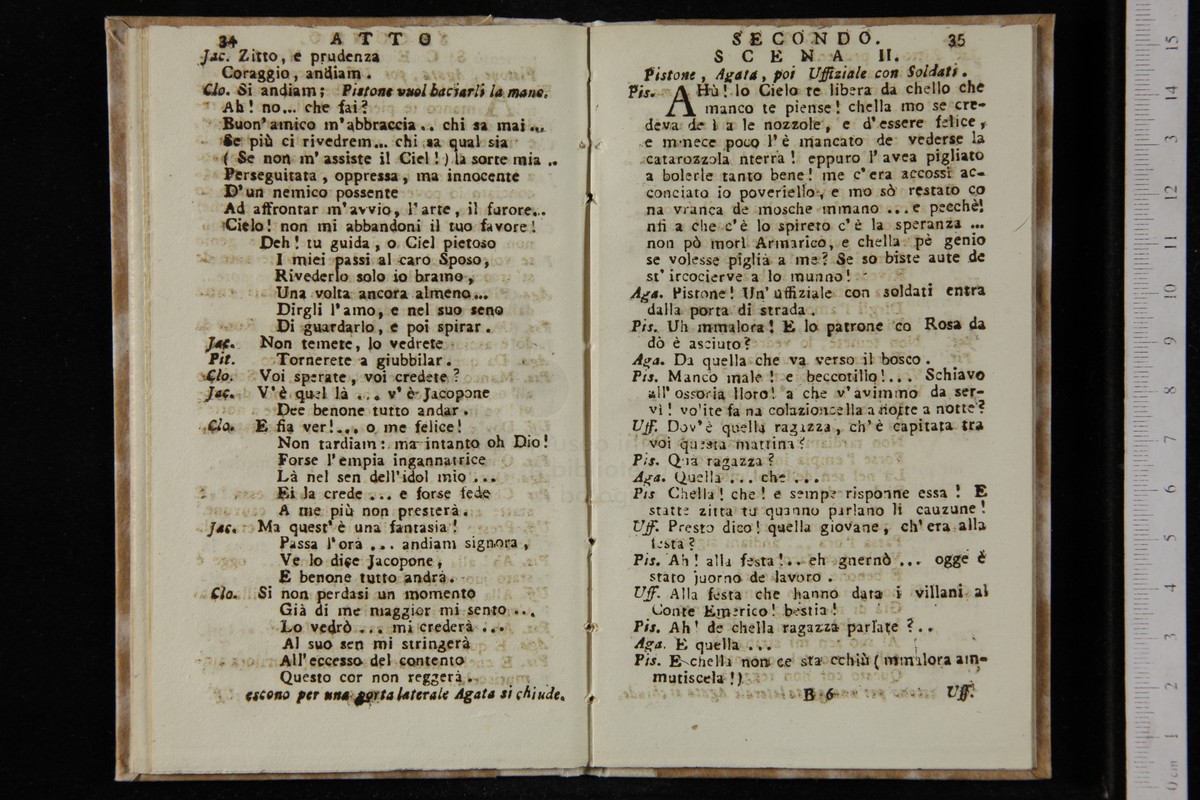 34 ATTO
Jac. Zitto, e prudenza
Coraggio, andiam.
Clo. Si andiam; Pistone vuol baciarli la mano.
Ah! no... che fai?
Buon' amico m'abbraccia.. chi sa mai...
Se più ci rivedrem... chi sa qual sia
( Se non m' assiste il Ciel! ) la sorte mia ..
Perseguitata, oppressa, ma innocente
D'un nemico possente
Ad affrontar m'avvio, l'arte, il furore...
Cielo! non mi abbandoni il tuo favore!
Deh! tu guida, o Ciel pietoso
I miei passi al caro Sposo,
Rivederlo solo io bramo,
Una volta ancora almeno...
Dirgli l'amo, e nel suo seno
Di guardarlo, e poi spirar.
Jac. Non temete, lo vedrete
Pit. Tornerete a giubbilar.
Clo. Voi sperate, voi credete?
Jac. V'è quel là ... v' è Jacopone
Dee benone tutto andar.
Clo. E fia ver!... o me felice!
Non tardiam: ma intanto oh Dio!
Forse l'empia ingannatrice
Là nel sen dell'idol mio ...
Ei la crede ... e forse fede
A me più non presterà.
Jac. Ma quest' è una fantasia!
Passa l'ora ... andiam signora,
Ve lo dice Jacopone,
E benone tutto andrà.
Clo. Si non perdasi un momento
Già di me maggior mi sento ...
Lo vedrò ... mi crederà ...
Al suo sen mi stringerà
All'eccesso del contento
Questo cor non reggerà.
escono per una porta laterale Agata si chiude.
SECONDO. 35
SCENA II.
Pistone, Agata, poi Uffiziale con Soldati.
Pis. AHù! lo Cielo te libera da chello che
manco te piense! chella mo se cre-
deva de ì a le nozzole, e d'essere felice,
e mmece poco l'è mancato de vederse la
catarozzola nterra! eppuro l'avea pigliato
a bolerle tanto bene! me c'era accossì ac-
conciato io poveriello, e mo sò restato co
na vranca de mosche mmano ... e peechè!
nfi a che c'è lo spireto c'è la speranza ...
non pò morì Armarico, e chella pè genio
se volesse piglià a me? Se so biste aute de
st' ircocierve a lo munno!
Aga. Pistone! Un' uffiziale con soldati entra
dalla porta di strada.
Pis. Uh mmalora! E lo patrone co Rosa da
dò è asciuto?
Aga. Da quella che va verso il bosco.
Pis. Manco male! e beccotillo!... Schiavo
all' ossoria lloro! a che v'avimmo da ser-
vì! vo'ite fa na colazioncella a notte a notte?
Uff. Dov'è quella ragazza, ch'è capitata tra
voi questa mattina?
Pis. Qua ragazza?
Aga. Quella ... che ...
Pis Chella! che! e sempe risponne essa! E
statte zitta tu quanno parlano li cauzune!
Uff. Presto dico! quella giovane, ch'era alla
festa?
Pis. Ah! alla festa!.. eh gnernò ... ogge è
stato juorno de lavoro.
Uff. Alla festa che hanno data i villani al
Conte Emerico! bestia!
Pis. Ah! de chella ragazza parlate?..
Aga. E quella ...
Pis. E chella non ce sta cchiù ( mmalora am-
mutiscela!)
B 6 Uff.